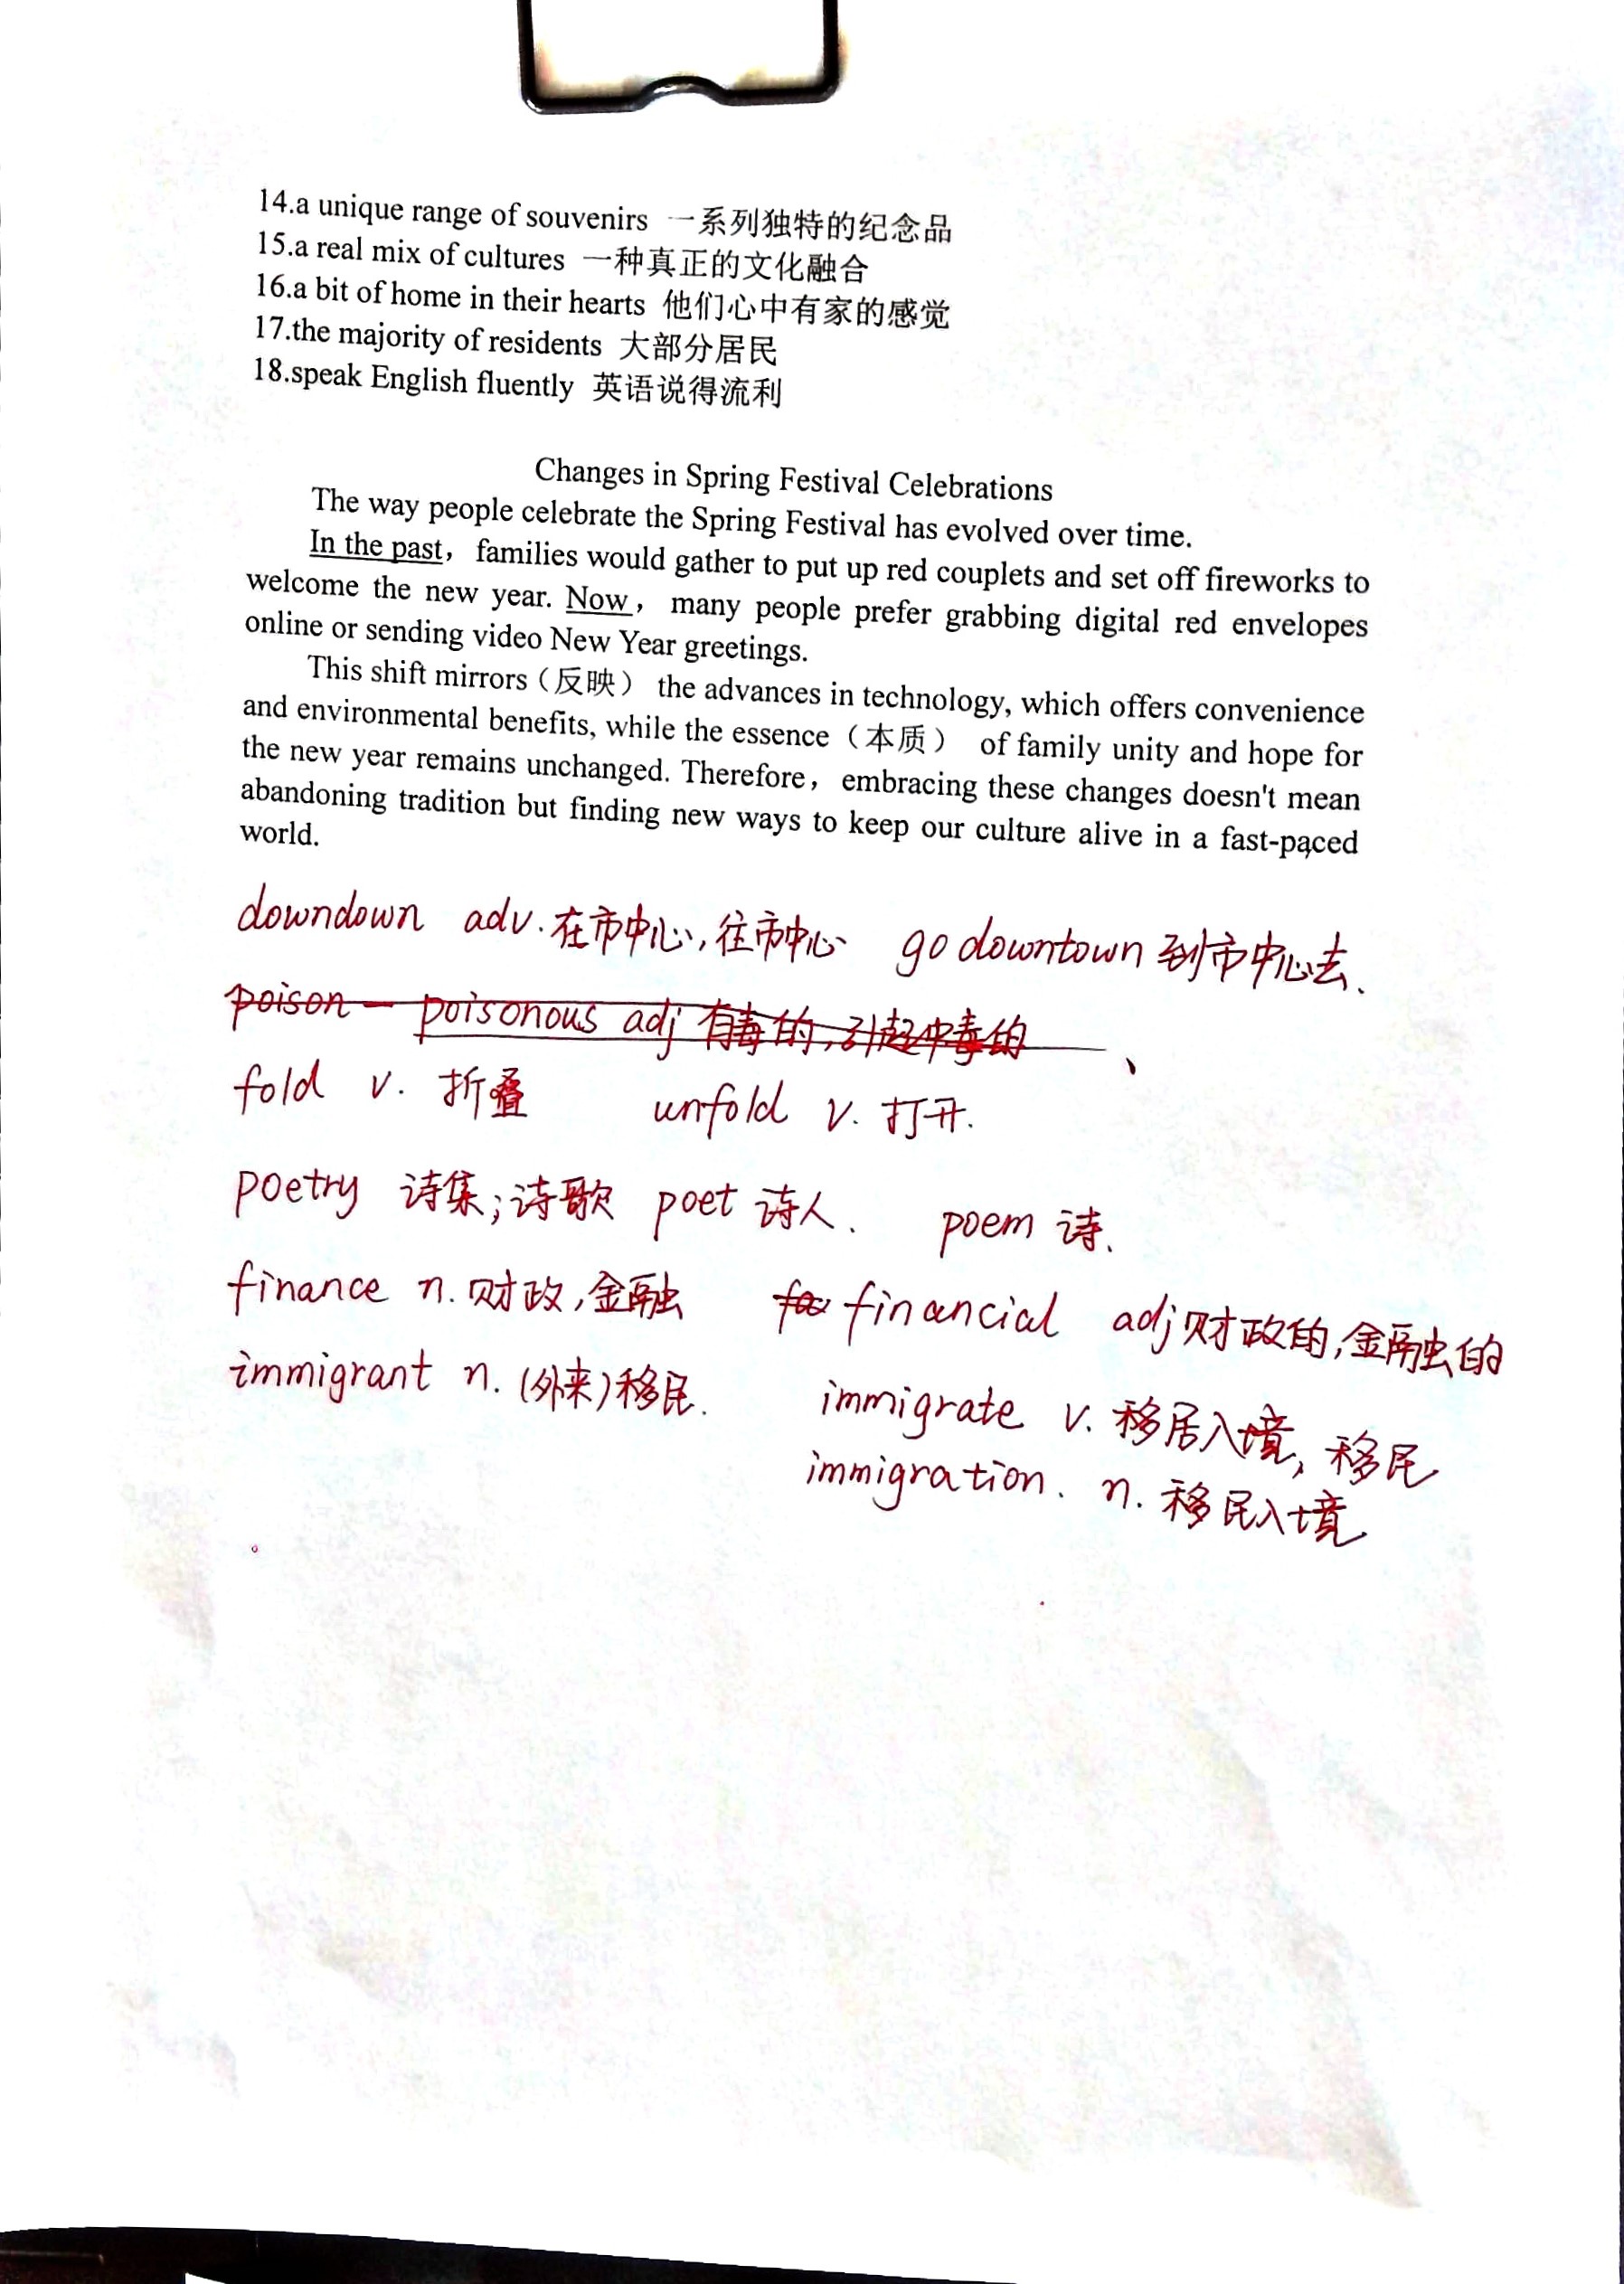 14.a unique range of souvenirs 一系列独特的纪念品
15.a real mix of cultures 一种真正的文化融合
16.a bit of home in their hearts 他们心中有家的感觉
17.the majority of residents 大部分居民
18.speak English fluently 英语说得流利
Changes in Spring Festival Celebrations
The way people celebrate the Spring Festival has evolved over time.
In the past， families would gather to put up red couplets and set off fireworks to
welcome the new year. Now， many people prefer grabbing digital red envelopes
online or sending video New Year greetings.
This shift mirrors（反映） the advances in technology, which offers convenience
and environmental benefits, while the essence（本质） of family unity and hope for
the new year remains unchanged. Therefore， embracing these changes doesn't mean
abandoning tradition but finding new ways to keep our culture alive in a fast-paced
world.
downdown adv. 在市中心, 往市中心 go downtown 到市中心去.
poison — poisonous adj 有毒的, 引起中毒的
fold v. 折叠 unfold v. 打开.
poetry 诗集; 诗歌 poet 诗人. poem 诗.
finance n. 财政, 金融 financial adj 财政的, 金融的
immigrant n. (外来)移民. immigrate v. 移居入境, 移民
immigration. n. 移民入境